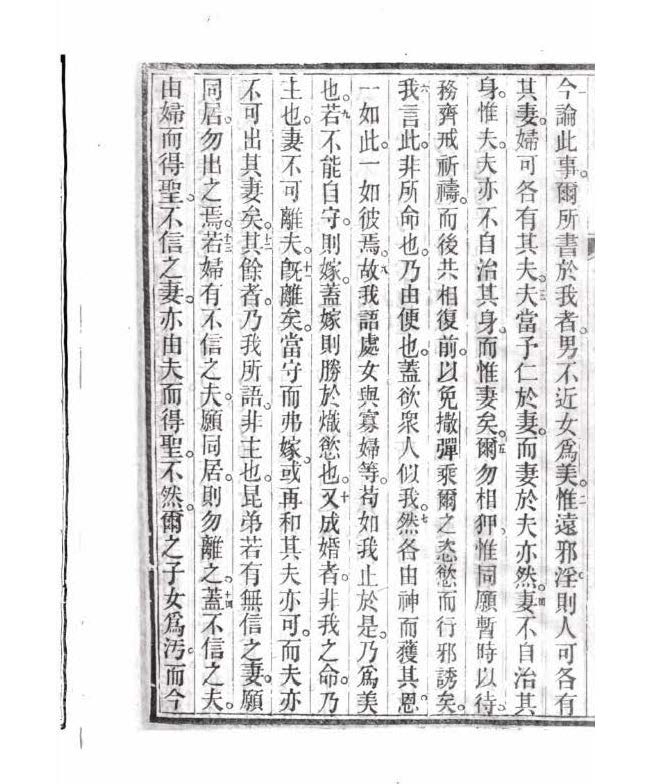 一今論此事爾所書於我者男不近女爲美二惟遠邪淫則人可各有
其妻婦可各有其夫三夫當予仁於妻而妻於夫亦然四妻不自治其
身惟夫夫亦不自治其身而惟妻矣五爾勿相狎惟同願暫時以待
務齊戒祈禱而後共相復前以免撒彈乘爾之恣慾而行邪誘矣
六我言此非所命也乃由便也蓋欲衆人似我七然各由神而獲其恩
一如此一如彼焉八故我語處女與寡婦等苟如我止於是乃爲美
也九若不能自守則嫁蓋嫁則勝於熾慾也十又成婚者非我之命乃
主也妻不可離夫十一旣離矣當守而弗嫁或再和其夫亦可而夫亦
不可出其妻矣十二其餘者乃我所語非主也昆弟若有無信之妻願
同居勿出之焉十三若婦有不信之夫願同居則勿離之十四蓋不信之夫
由婦而得聖不信之妻亦由夫而得聖不然爾之子女爲汚而今